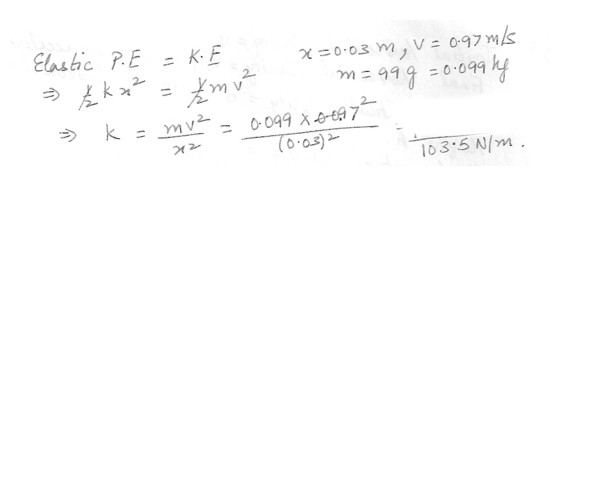 Elastic P.E = K.E x = 0.03 m, v = 0.97 m/s
m = 99 g = 0.099 kg
⇒ 1/2 k x² = 1/2 m v²
⇒ k = mv²/x² = 0.099 × 0.97²/(0.03)² = 103.5 N/m.